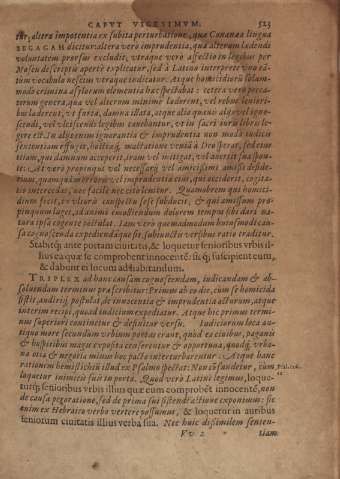 CAPVT VIGESIMVM. 523
tur, altera impotentia ex subita perturbatione, quæ Cananæa lingua
SEGAGAH dicitur: altera vero imprudentia, qua alterum lædendi
voluntatem prorsus excludit, vtraque vero affectio in legibus per
Mosen descriptis apertè explicatur, sed à Latino interprete vno
tum vocabulo nescium vtraque indicatur. Atque homicidium solum-
modo crimina asylorum elementia hæc spectabat: cetera vero pecca-
torum genera, qua vel alterum minimè læderent, vel rebus leniori-
bus læderent, vt furta, damna illata, atque alia
scendi, vel
gere est. In alienum ignorantia & imprudentia non modò iudicis
sententiam effugit, veniā à Deo sperat, sed etiam
etiam, qui damnum acceperit, iram vel mitigat, vel auertit
At vero propinqui vel necessarij vel amicissimi amissi deside-
rium, quamquam errore vel imprudentia eius, qui occiderit, cogita-
tio intercedat, nec facile nec cito lenitur. Quamobrem qui homici-
dium fecit, vt vltoris conspectu sese subducit, & qui amissum pro-
pinquum luget, ad animi emolliendum dolorem tempus sibi dari na-
tura ipsa cogente postulat. Iam verò quemadmodum huiusmodi cau-
sa cognoscenda expendendáque sit, subiunctis versibus ratio traditur.
Stabitq́; ante portam ciuitatis, & loquetur senioribus vrbis il-
lius ea quæ se comprobent innocentē: sicq́; suscipient eum,
& dabunt ei locum ad habitandum.
TRIPLEX ad hanc causam cognoscendam, iudicandam & ab-
soluendam terminus præscribitur: Primum ab eo die, cum se homicida
sistit, audiriq́; postulat, de innocentia & imprudentia acturum, atque
interim recipi, quoad iudicium expediatur. Atque hic primus termi-
nus superiori continetur & definitur versu. Iudiciorum loca anti-
quo more secundum vrbium portas erant, quòd ea ciuibus, paganis
& hospitibus magis exposita essent & opportuna, quodq́; vrba-
na otia & negotia minus hoc pacto interturbarentur. Atque hanc
rationem hemistichij illud ex Psalmo spectat: Non cōfundetur, cum
loquetur inimicis suis in porta. Quod verò Latini legimus, loque-
turq́; senioribus vrbis illius quæ eum comprobēt innocentē, non
de causa peroratione, sed de prima sui sistendi actione exponimus: sic
enim ex Hebraico verbo vertere possumus, & loquetur in auribus
seniorum ciuitatis illius verba sua. Nec huic dissimilem senten-
Vv 2 tiam